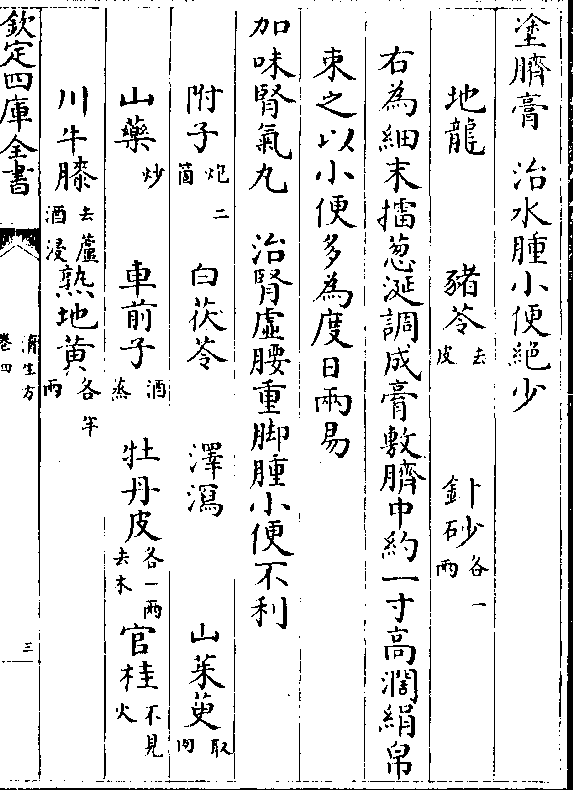 塗臍膏　治水腫小便絶少
地龍　豬苓去皮　針砂各一兩
右為細末擂葱涎調成膏敷臍中約一寸高濶絹帛
束之以小便多為度日兩易
加味腎氣丸　治腎虛腰重脚腫小便不利
附子炮二箇　白茯苓　澤瀉　山茱萸取肉
山藥炒　車前子酒蒸　牡丹皮各一兩去木　官桂不見火
川牛膝去蘆酒浸　熟地黄各半兩
欽定四庫全書
濟生方
卷四
三